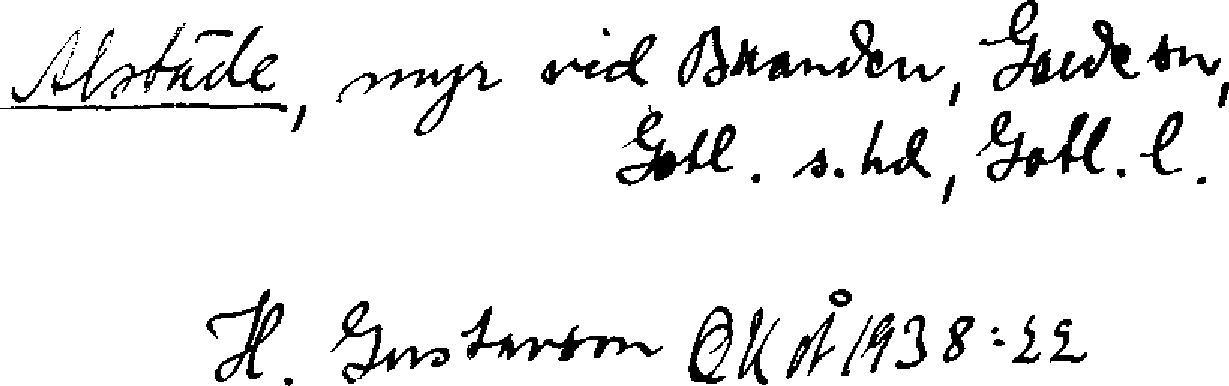 Alstäde, myr vid Buanden, Garde sn,
Gotl. s. hd, Gotl. l.
H. Gustavson GKÅ 1938:22